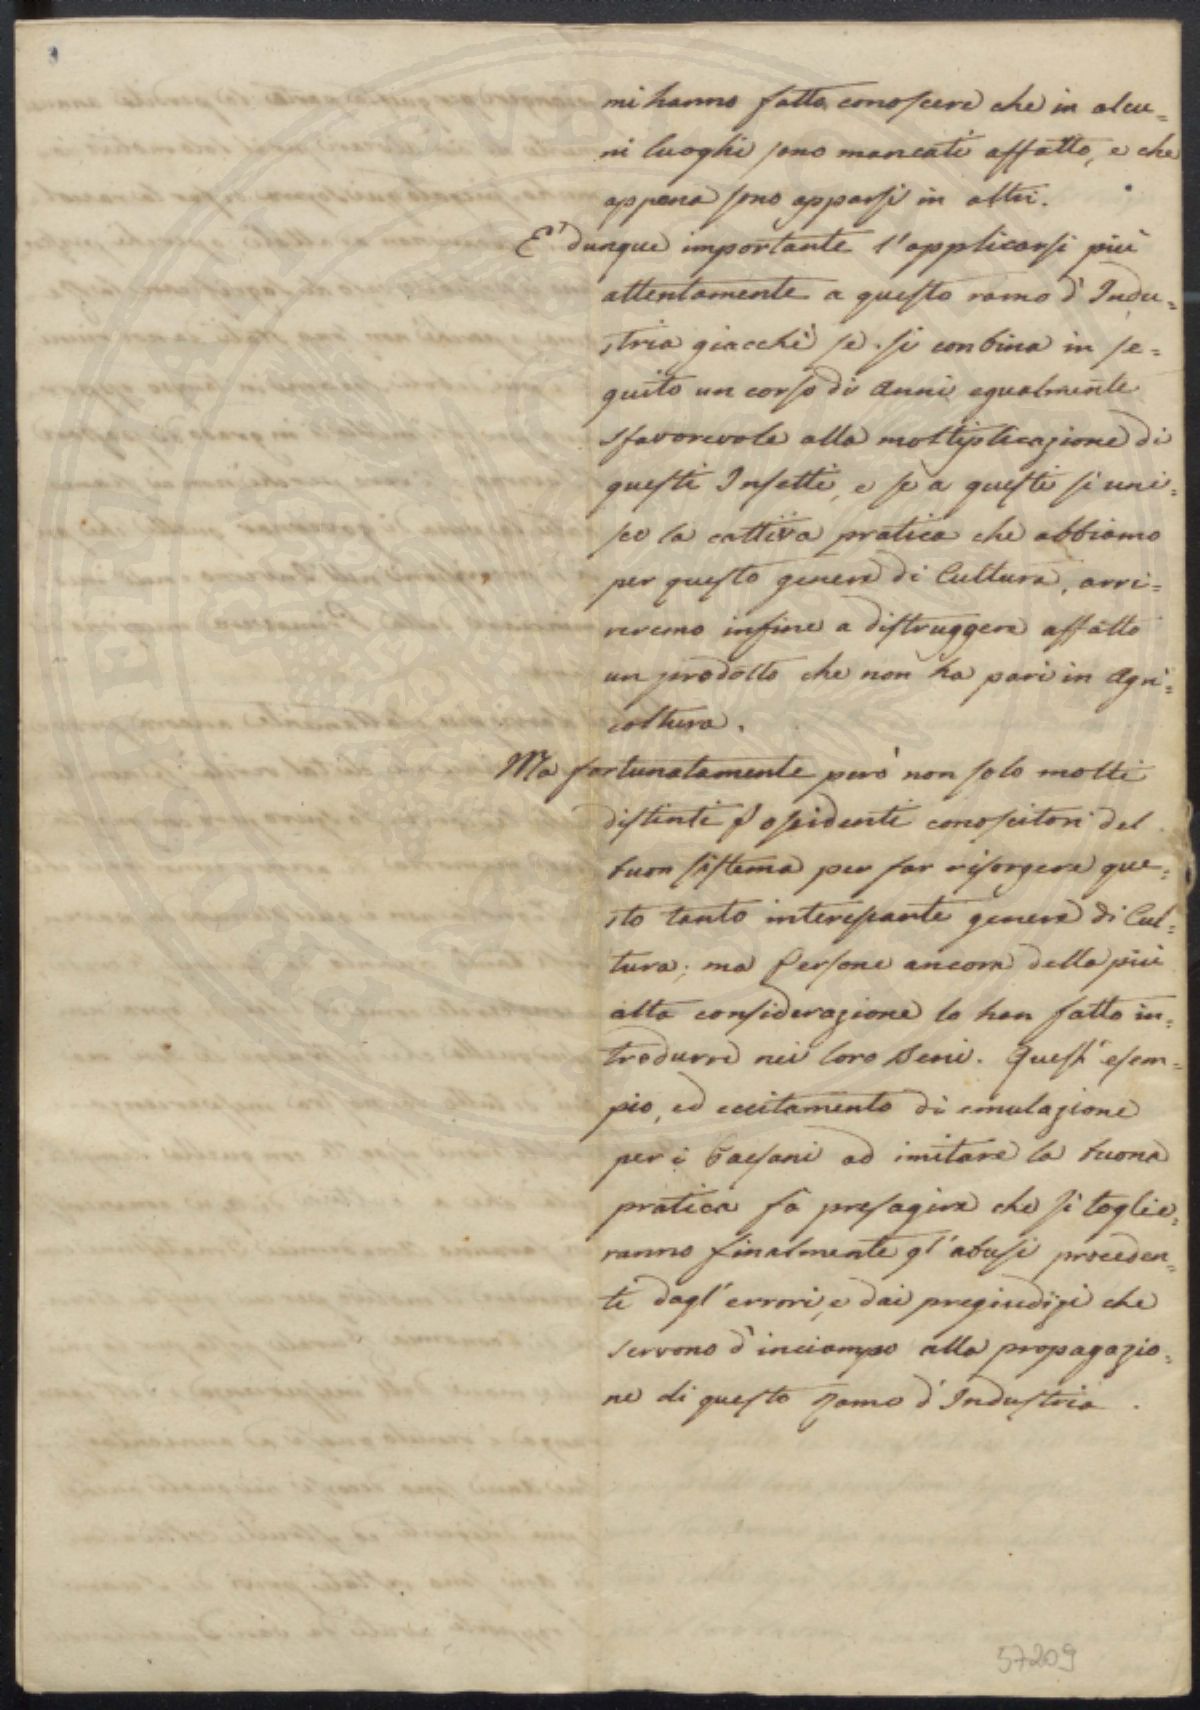 mi hanno fatto conoscere che in alcu=
ni luoghi sono mancati affatto, e che
appena sono apparsi in altri.
E' dunque importante l'applicarsi più
attentamente a questo ramo d'Indu=
stria giacchè se si conbina in se=
guito un corso di Anni egualmente
sfavorevole alla moltiplicazione di
questi Insetti, e se a questi si uni=
sce la cattiva pratica che abbiamo
per questo genere di Cultura, arri=
veremo infine a distruggere affatto
un prodotto che non ha pari in Agri=
coltura.
Ma fortunatamente però non solo molti
distinti Possidenti conoscitori del
buon sistema per far risorgere que=
sto tanto interessante genere di Cul=
tura; ma Persone ancora della più
alta considerazione lo han fatto in=
trodurre nei loro Beni. Quest'esem=
pio, ed eccitamento di emulazione
per i Paesani ad imitare la buona
pratica fà presagire che si toglie=
ranno finalmente gl'abusi proceden=
ti dagl'errori, e dai pregiudizi che
servono d'inciampo alla propagazio=
ne di questo Ramo d'Industria.
57209